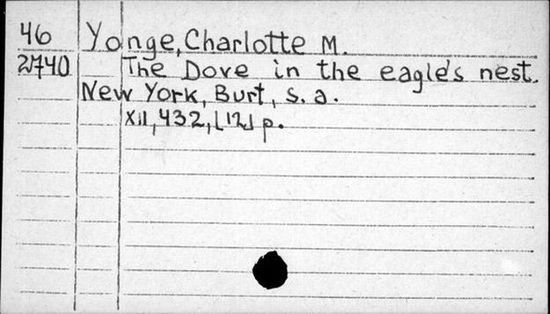 46 Yonge, Charlotte M.
2740 The Dove in the eagle's nest.
New York, Burt, s. a.
XII, 432, [12] p.